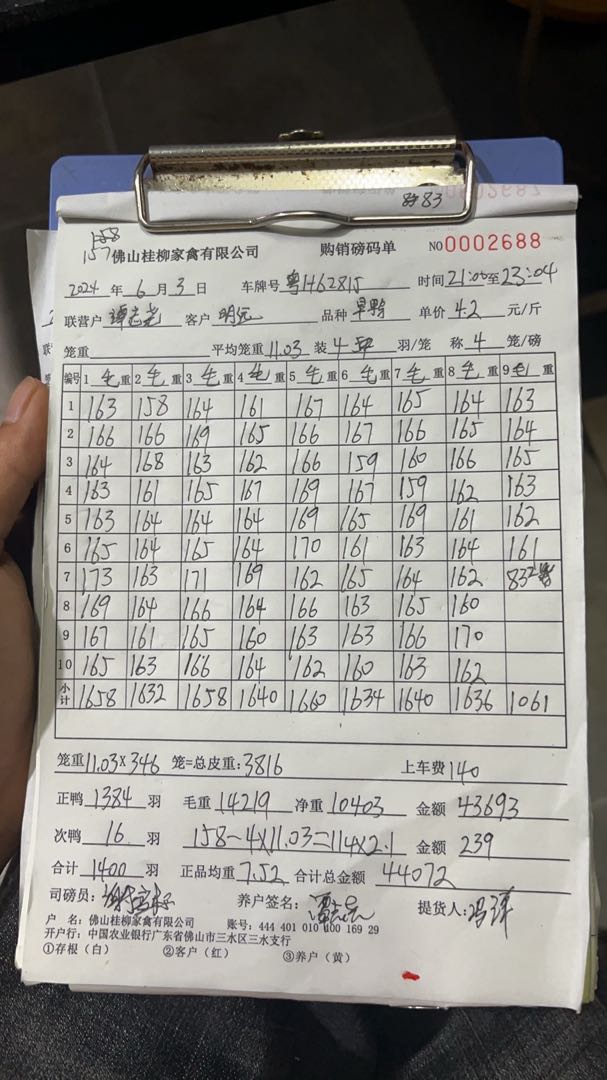 8383
158
157 佛山桂柳家禽有限公司 购销磅码单 NO 0002688
2024 年 6 月 3 日 车牌号 粤H62815 时间 21:00 至 23:04
联营户 客户 明远 品种 旱鸭 单价 4.2 元/斤
笼重 平均笼重 11.03 装 4 羽/笼 称 4 笼/磅
编号 1 毛重 2 毛重 3 毛重 4 毛重 5 毛重 6 毛重 7 毛重 8 毛重 9 毛重
1 163 158 164 161 167 164 165 164 163
2 166 166 169 165 166 167 166 165 164
3 164 168 163 162 166 159 160 166 165
4 163 161 165 167 169 167 159 162 163
5 163 164 164 164 169 165 169 161 162
6 165 164 165 164 170 161 163 164 161
7 173 163 171 169 162 165 164 162 83 2
8 169 164 166 164 166 163 165 160
9 167 161 165 160 163 163 166 170
10 165 163 166 164 162 160 163 162
小计 1658 1632 1658 1640 1660 1634 1640 1636 1061
笼重 11.03 × 346 笼=总皮重: 3816 上车费 140
正鸭 1384 羽 毛重 14219 净重 10403 金额 43693
次鸭 16 羽 158-4×11.03=114×2.1 金额 239
合计 1400 羽 正品均重 7.52 合计总金额 44072
司磅员: 养户签名: 提货人:
户 名: 佛山桂柳家禽有限公司 账号: 444 401 010 400 169 29
开户行: 中国农业银行广东省佛山市三水区三水支行
①存根（白） ②客户（红） ③养户（黄）